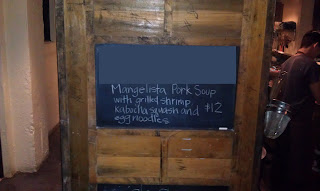 Mangelista Pork Soup
with grilled shrimp
kabocha squash and $12
egg noodles